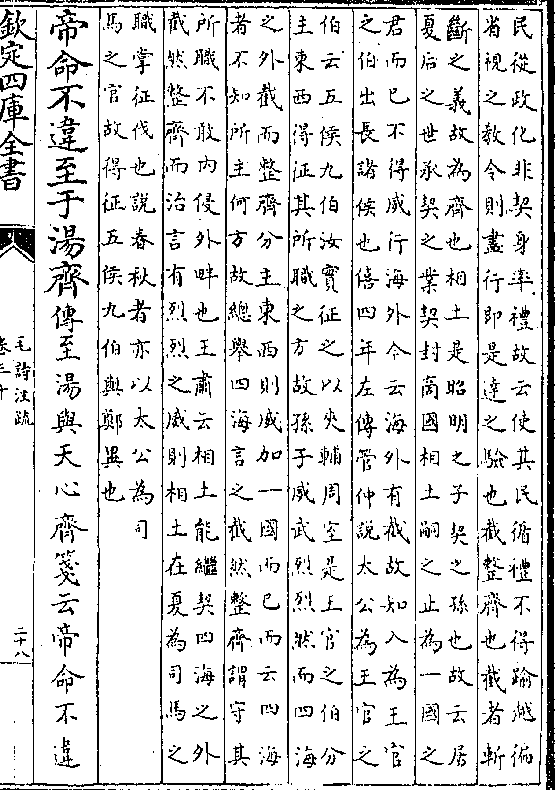 民從政化非契身率禮故云使其民循禮不得踰越徧
省視之教令則盡行即是達之驗也截整齊也截者斬
斷之義故為齊也相土是昭明之子契之孫也故云居
夏后之世承契之業契封商國相土嗣之止為一國之
君而已不得威行海外今云海外有截故知入為王官
之伯出長諸侯也僖四年左傳管仲説太公為王官之
伯云五侯九伯汝實征之以夾輔周室是王官之伯分
主東西得征其所職之方故孫子威武烈烈然而四海
之外截而整齊分主東西則威加一國而已而云四海
者不知所主何方故總舉四海言之截然整齊謂守其
所職不敢内侵外畔也王肅云相土能繼契四海之外
截然整齊而治言有烈烈之威則相土在夏為司馬之
職掌征伐也説春秋者亦以太公為司
馬之官故得征五侯九伯與鄭異也
帝命不違至于湯齊傳至湯與天心齊箋云帝命不違
欽定四庫全書
毛詩注疏
卷三十
二十八